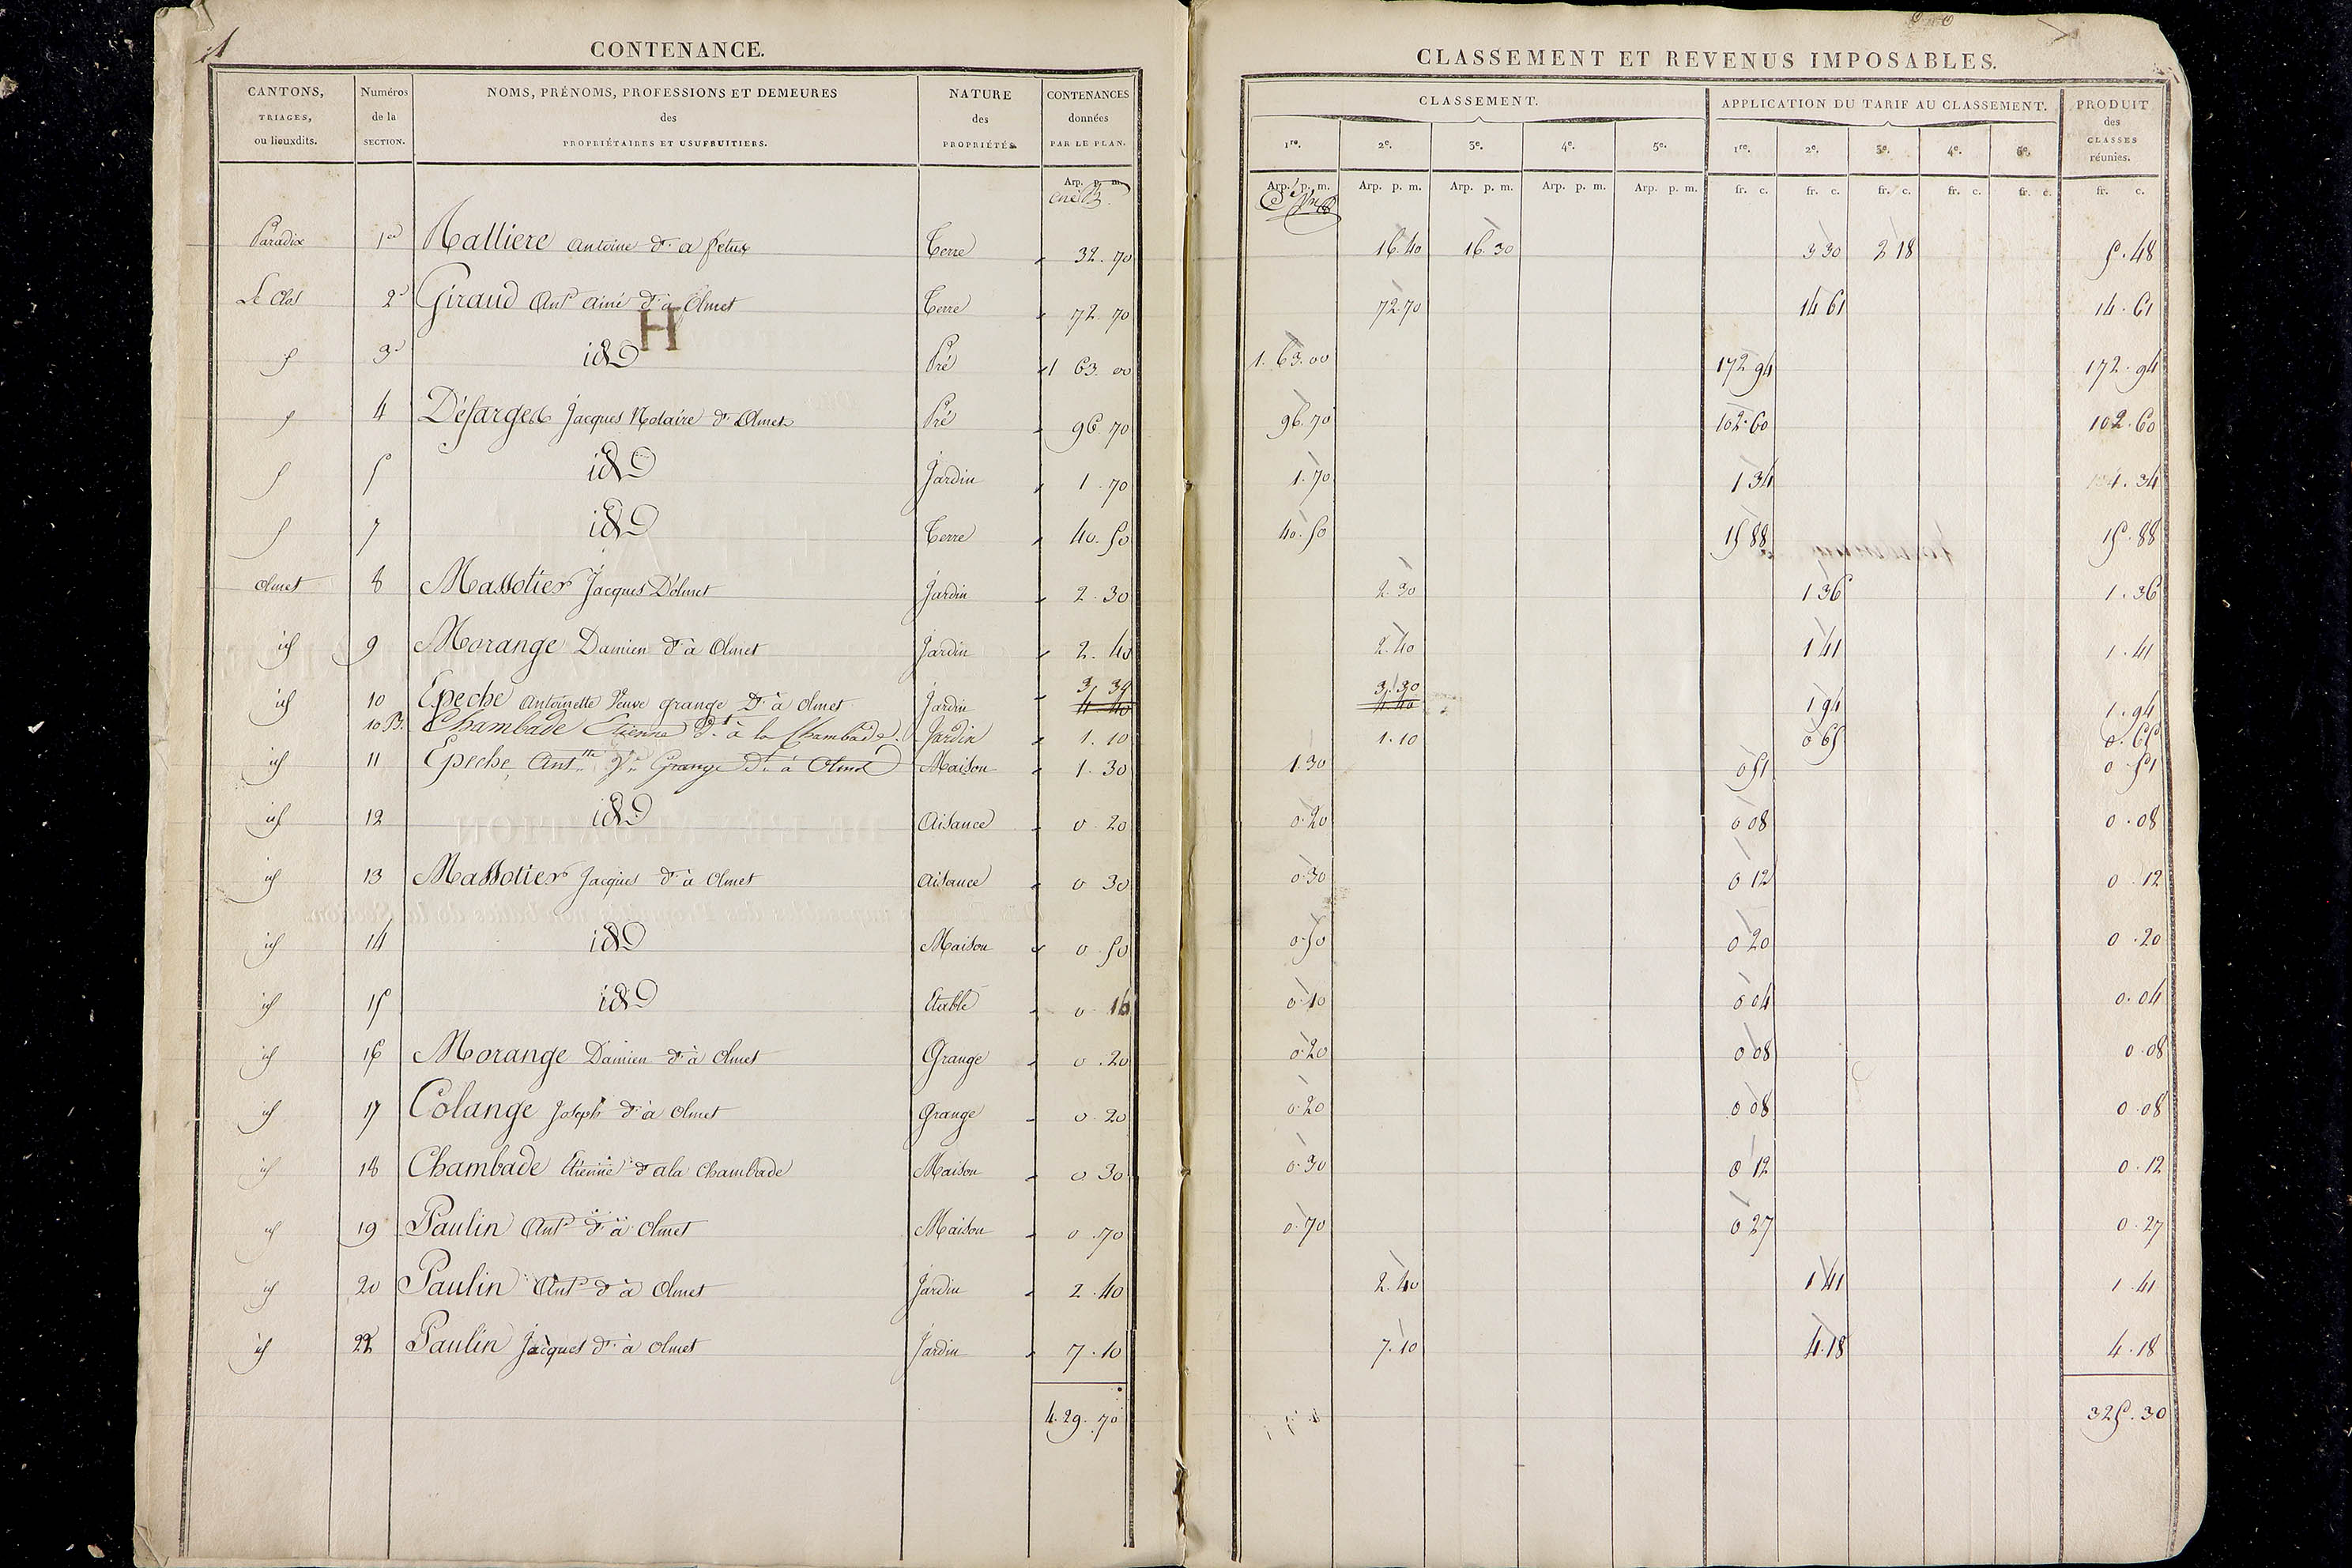 1
CONTENANCE.
CANTONS, TRIAGES, ou lieuxdits. Numéros de la SECTION. NOMS, PRÉNOMS, PROFESSIONS ET DEMEURES des PROPRIÉTAIRES ET USUFRUITIERS. NATURE des PROPRIÉTÉS. CONTENANCES données PAR LE PLAN.
Arp. p. m.
Paradix 1er Malliere Antoine dt a fetux Terre 32. 70
Le Clos 2d Giraud Ant ainé dt a Olmet Terre 72. 70
H
3d id Pré 1 63. 00
4 Désarges Jacques Notaire dt Olmet Pré 96. 70
5 id Jardin 1. 70
7 id Terre 40. 50
olmet 8 Massotier Jacques D'olmet Jardin 2. 30
id 9 Morange Damien dt à Olmet Jardin 2. 40
id 10 Epeche Antoinette Veuve grange Dt à olmet Jardin 3. 30 4 40
10 B. Chambade Etienne dt à la Chambade. Jardin 1. 10
id 11 Epeche Antte Ve Grange Dt à Olmet Maison 1. 30
id 12 id Aisance 0. 20
id 13 Massotier Jacques dt à Olmet Aisance 0 30
id 14 id Maison 0. 50
id 15 id Etable 0 10
id 16 Morange Damien dt à Olmet Grange 0. 20
id 17 Colange Joseph dt à Olmet Grange 0. 20
id 18 Chambade Etienne dt ala Chambade Maison 0 30
id 19 Paulin Ant dt à Olmet Maison 0. 70
id 20 Paulin Ant dt à Olmet Jardin 2. 40
id 22 Paulin Jacques dt à Olmet Jardin 7. 10
4. 29. 70
CLASSEMENT ET REVENUS IMPOSABLES.
CLASSEMENT. APPLICATION DU TARIF AU CLASSEMENT. PRODUIT des CLASSES réunies.
1re. 2e. 3e. 4e. 5e. 1re. 2e. 3e. 4e. 5e.
Arp. p. m. Arp. p. m. Arp. p. m. Arp. p. m. Arp. p. m. fr. c. fr. c. fr. c. fr. c. fr. c. fr. c.
16. 40 16. 30 3 30 2 18 5. 48
72. 70 14 61 14. 61
1. 63. 00 172 94 172. 94
96. 70 102. 60 102. 60
1. 70 1 34 1. 34
40. 50 15 88 15. 88
2. 30 1 36 1. 36
2. 40 1 41 1. 41
3. 30 4. 40 1 94 1. 94
1. 10 0 65 0. 65
1. 30 0 51 0. 51
0. 20 0 08 0. 08
0. 30 0 12 0. 12
0. 50 0 20 0. 20
0. 10 0 04 0. 04
0. 20 0 08 0. 08
0. 20 0 08 0. 08
0. 30 0 12 0. 12
0. 70 0 27 0. 27
2. 40 1 41 1. 41
7. 10 4. 18 4. 18
325. 30